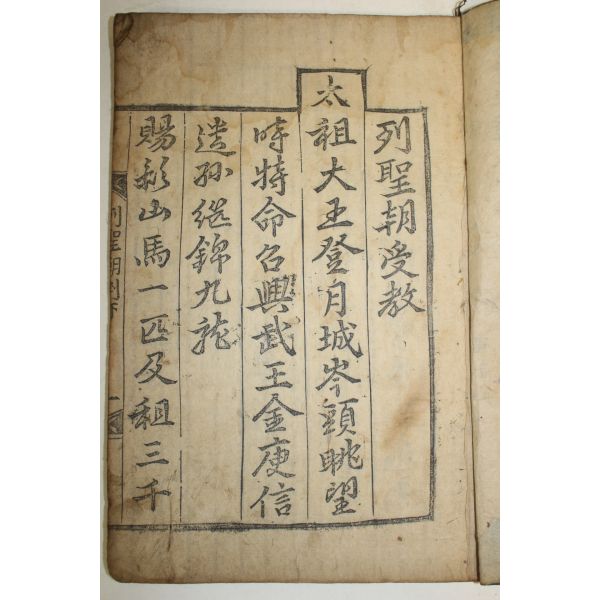 列聖朝受教
太祖大王登月城岑頭眺望
時特命召興武王金庾信
遺孫繼錦九龍
賜彩山馬一匹及租三千
列聖朝